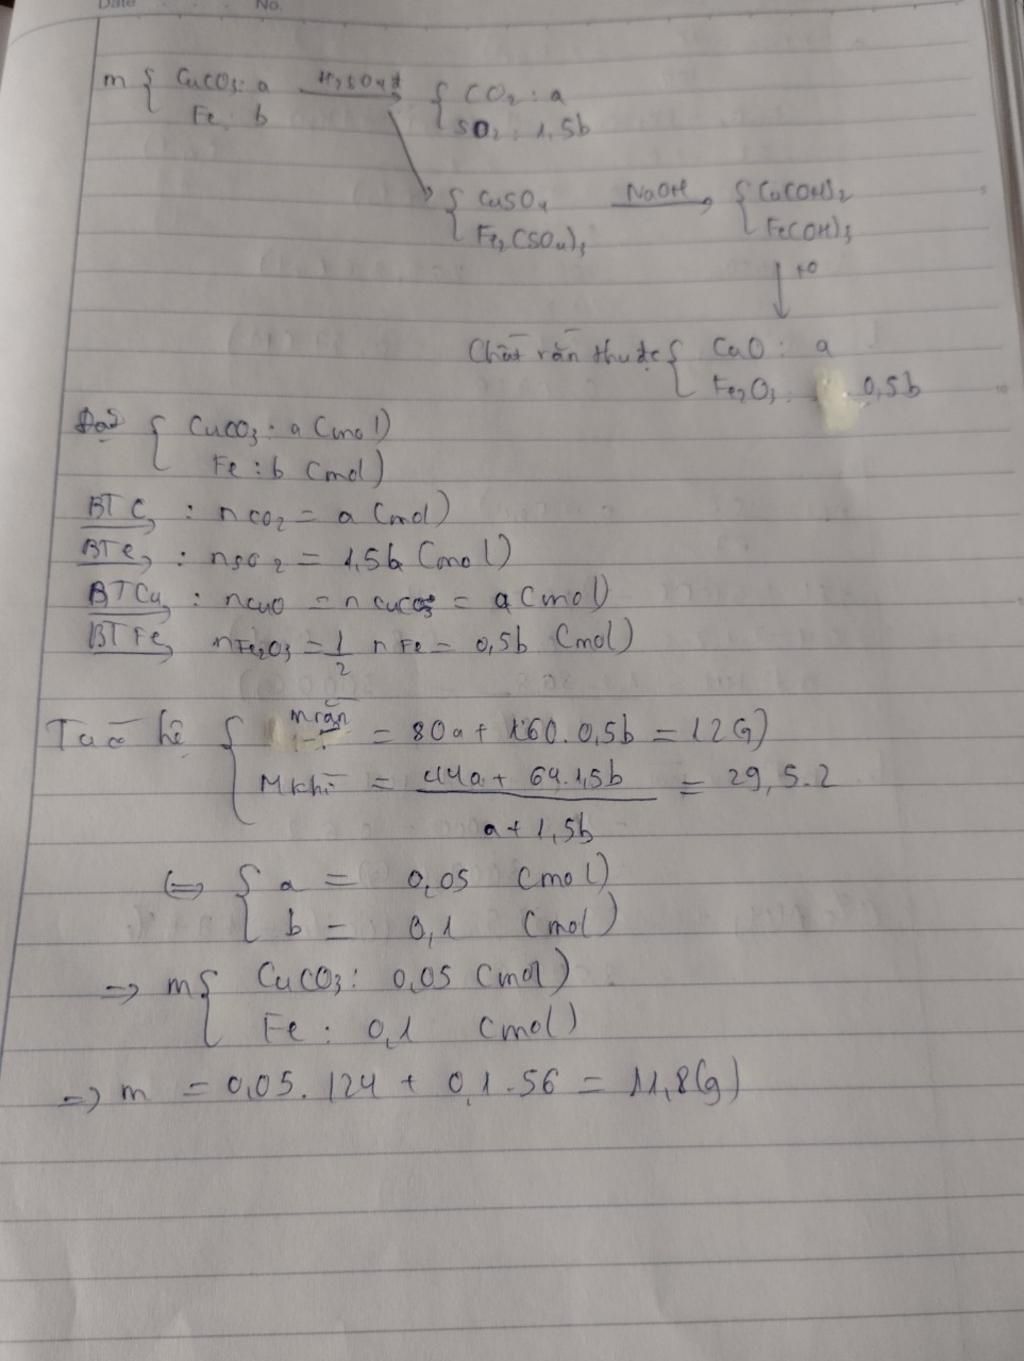 Date No.
m { CuCO3: a H2SO4đ { CO2 : a
Fe : b SO2 : 1,5b
{ CuSO4 NaOH { Cu(OH)2
Fe2(SO4)3 Fe(OH)3
to
Chất rắn thu đc { CuO : a
Fe2O3 : 0,5b
Đặt { CuCO3 : a (mol)
Fe : b (mol)
BTC : nCO2 = a (mol)
BTe : nSO2 = 1,5b (mol)
BTCu : nCuO = nCuCO3 = a (mol)
BTFe nFe2O3 = 1/2 nFe = 0,5b (mol)
Ta có hệ { mrắn = 80a + 160.0,5b = 12(g)
Mkhí = (44a + 64.1,5b)/(a + 1,5b) = 29,5.2
⇔ { a = 0,05 (mol)
b = 0,1 (mol)
⇒ m { CuCO3: 0,05 (mol)
Fe : 0,1 (mol)
⇒ m = 0,05.124 + 0,1.56 = 11,8(g)